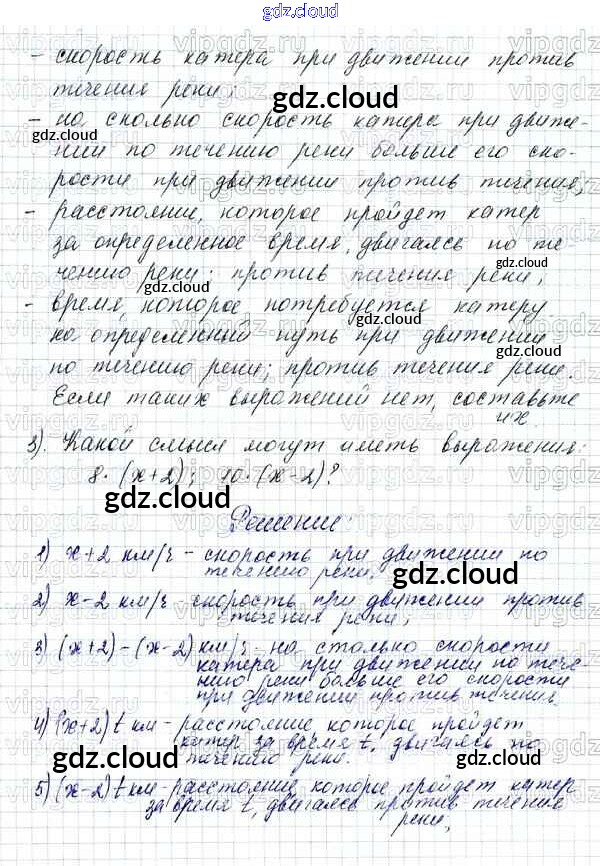 gdz.cloud
- скорость катера при движении против
течения реки;
- на сколько скорость катера при движе-
нии по течению реки больше его ско-
рости при движении против течения;
- расстояние, которое пройдет катер
за определенное время, двигаясь по те-
чению реки; против течения реки;
- время, которое потребуется катеру
на определенный путь при движении
по течению реки; против течения реки.
Если таких выражений нет, составьте
их.
3). Какой смысл могут иметь выражения:
8·(x+2); 10·(x-2)?
Решение:
1) x+2 км/ч - скорость при движении по
течению реки;
2) x-2 км/ч - скорость при движении против
течения реки;
3) (x+2)-(x-2) км/ч - на столько скорости
катера при движении по тече-
нию реки больше его скорости
при движении против течения.
4) (x+2)t км - расстояние которое пройдет
катер за время t, двигаясь по
течению реки.
5) (x-2)t км - расстояние которое пройдет катер
за время t, двигаясь против течения
реки;